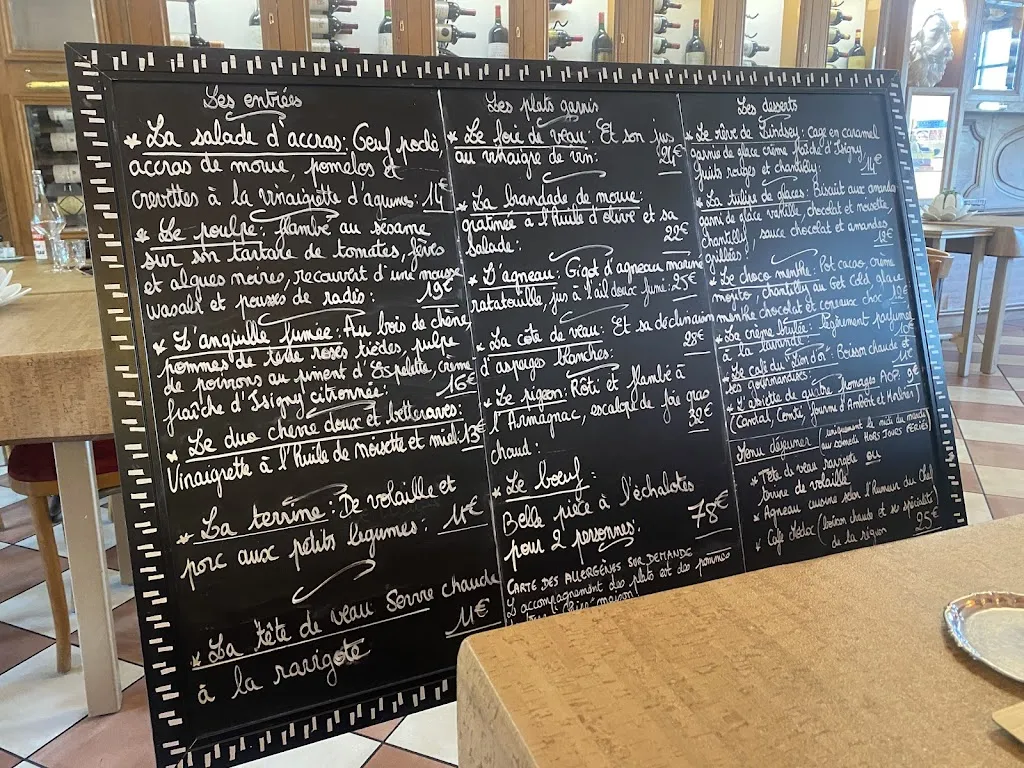 Les entrées
* La salade d'accras: Oeuf poché,
accras de morue, pomelos et
crevettes à la vinaigrette d'agrumes: 14€
* Le poulpe: flambé au sésame
sur son tartare de tomates, fèves
et algues noires, recouvrat d'une mousse
wasabi et pousses de radis: 19€
* L'anguille fumée: Au bois de chêne,
pommes de terre roses tièdes, pulpe
de poivrons au piment d'Espelette, crème
fraîche d'Isigny citronnée: 16€
* Le duo chèvre doux et betteraves:
Vinaigrette à l'huile de noisette et miel: 13€
* La terrine: De volaille et
porc aux petits légumes: 11€
* La tête de veau: Servie chaude
à la ravigote 11€
Les plats garnis
* Le foie de veau: Et son jus
au vinaigre de vin: 21€
* La brandade de morue:
gratinée à l'huile d'olive et sa
salade: 22€
* L'agneau: Gigot d'agneau mariné
ratatouille, jus à l'ail doux fumé: 25€
* La côte de veau: Et sa déclinaison
d'asperges blanches: 28€
* Le pigeon: Rôti et flambé à
l'Armagnac, escalope de foie gras
chaud:
* Le boeuf:
Belle pièce à l'échalotes
pour 2 personnes: 78€
CARTE DES ALLERGÈNES SUR DEMANDE
L'accompagnement des plats est des pommes
Les desserts
* Le rêve de Lindsey: Cage en caramel
garnie de glace crème fraîche d'Isigny
fruits rouges et chantilly: 14€
* La tulipe de glaces: Biscuit aux amandes
garni de glace vanille, chocolat et noisette,
chantilly, sauce chocolat et amandes
grillées
* Le choco menthe: Pot cacao, crème
mojito, chantilly au Get Cold, glace
menthe chocolat et coneaux choc 12€
* La crème brûlée: légèrement parfumée
à la lavande: 10€
* Le café du Lion d'or: Boisson chaude et
ses gourmandises: 11€
* L'assiette de quatre fromages AOP: 9€
(Cantal, Comté, Fourme d'Ambert et Morbier)
Menu déjeuner (uniquement le midi du mardi
au samedi HORS JOURS FÉRIÉS)
* Tête de veau ravigote ou
terrine de volaille
* Agneau cuisiné selon l'humeur du Chef
* Café Médoc (boisson chaude et ses spécialités
de la région 25€